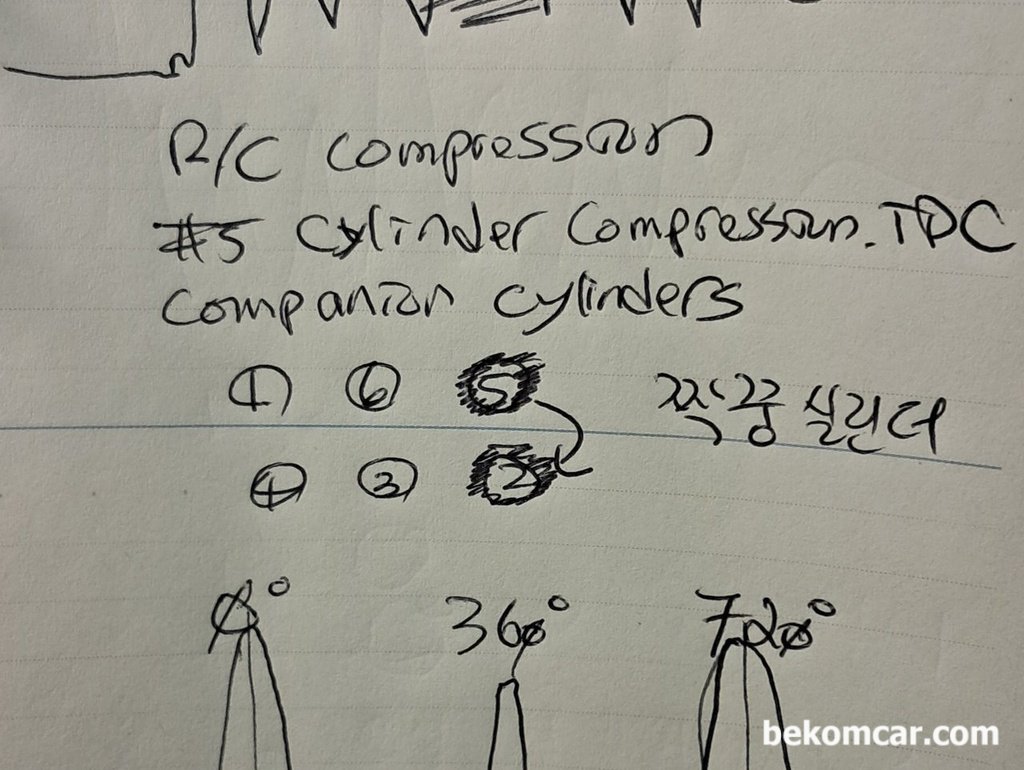 R/C compression
#5 cylinder compression. TDC
companion cylinders
① ⑥ ⑤ 짝꿍 실린더
④ ③ ②
0° 360° 720°
bekomcar.com